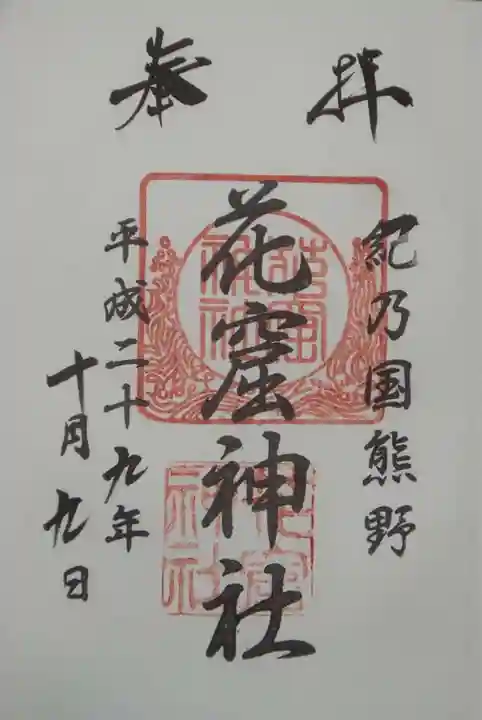 奉拝
紀乃国熊野
花窟神社
平成二十九年
十月九日
花窟
神社
花窟
神社